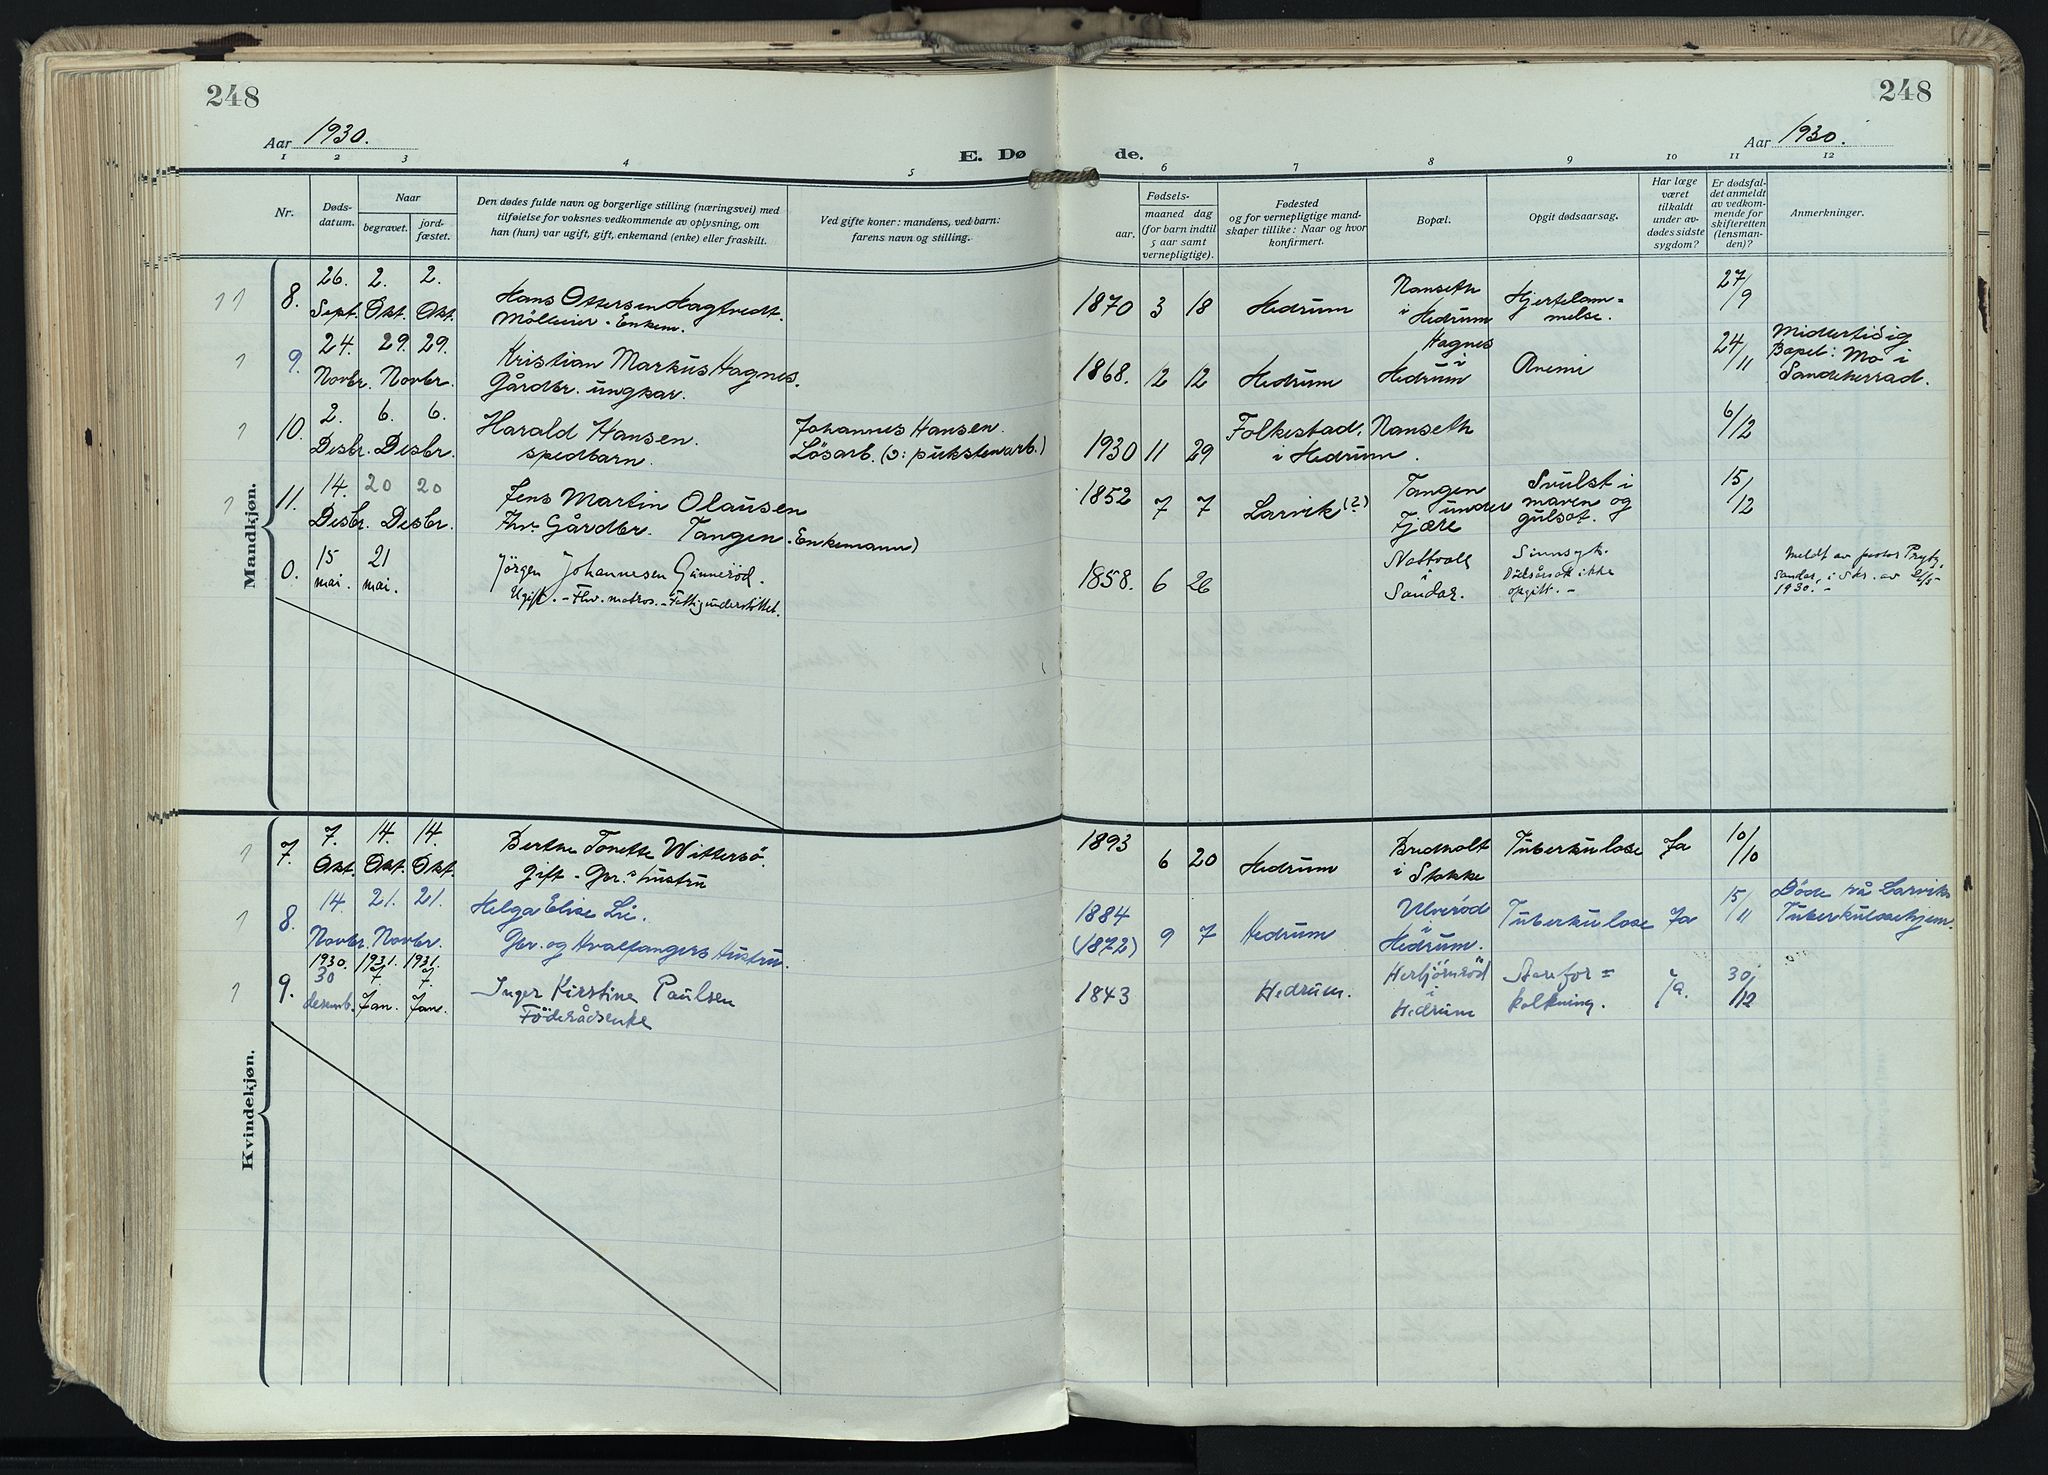 248
248
Aar 1930.
Aar 1930.
E. Dø
de.
1 2 3 4 5 6 7 8 9 10 11 12
Nr.
Døds-
datum.
Naar
begravet.
jord-
fæstet.
Den dødes fulde navn og borgerlige stilling (næringsvei) med
tilføielse for voksnes vedkommende av oplysning, om
han (hun) var ugift, gift, enkemand (enke) eller fraskilt.
Ved gifte koner: mandens, ved barn:
farens navn og stilling.
Fødsels-
aar.
maaned dag
(for barn indtil
5 aar samt
vernepligtige).
Fødested
og for vernepligtige mand-
skaper tillike: Naar og hvor
konfirmert.
Bopæl.
Opgit dødsaarsag.
Har læge
været
tilkaldt
under av-
dødes sidste
sygdom?
Er dødsfal-
det anmeldt
av vedkom-
mende for
skifteretten
(lensman-
den)?
Anmerkninger.
Mandkjøn.
8. 26. Sept. 2. Okt. 2. Okt.
Hans Ottersen Hagtvedt.
Mölleier - Enkem.
1870 3 18 Hedrum
Nanseth
i
Hedrum
Hjertelam=
melse.
27/9
9. 24. Novbr. 29. Novbr. 29.
Kristian Markus Hagnes.
Gårdbr. ungkar.
1868. 12 12 Hedrum
Hagnes
i
Hedrum
Anemi
24/11
Midlertidig
Bopel: Mo i
Sandeherrad.
10. 2. Desbr. 6. Desbr. 6.
Harald Hansen.
spedbarn.
Johannes Hansen.
Løsarb. (ɔ: pukstenarb.)
1930 11 29
Folkestad, Nanseth
i Hedrum.
6/12
11. 14. Desbr. 20 Desbr. 20
Jens Martin Olausen
Fhv. Gårdbr. Tangen. Enkemann)
1852 7 7 Larvik (?)
Tangen
under
Fjære
Svulst i
maven og
gulsot.
15/12
0. 15 mai. 21 mai.
Jörgen Johannesen Gunneröd.
Ugift. - Fhv. matros. - Fattigunderstöttet.
1858. 6 26
Nattvall
i
Sandar.
Sinnsyk.
Dödsårsak ikke
opgitt. -
Meldt av pastor Pryty,
Sandar, i skr. av
1930. -
Kvindekjøn.
7. 7. Okt. 14. Okt. 14. Okt.
Berthe Tonette Wittersö.
Gift - Gbr.s hustru
1893 6 20 Hedrum
Bredholt
i Stokke
Tuberkulose Ja 10/10
8. 14. Novbr. 21. Novbr. 21.
Helga Elise Lie.
Gbr. og Hvalfangers Hustru.
1884
(1872) 9 7 Hedrum
Ulveröd
i
Hedrum.
Tuberkulose Ja 15/11
Döde på Larviks
Tuberkulosehjem.
1930. 1931. 1931.
9. 30 desemb. 7. Jan. 7. Jan.
Inger Kirstine Paulsen
Föderådsenke
1843 Hedrum.
Herbjörnröd
i
Hedrum
Aarefor=
kalkning.
Ja. 30/12